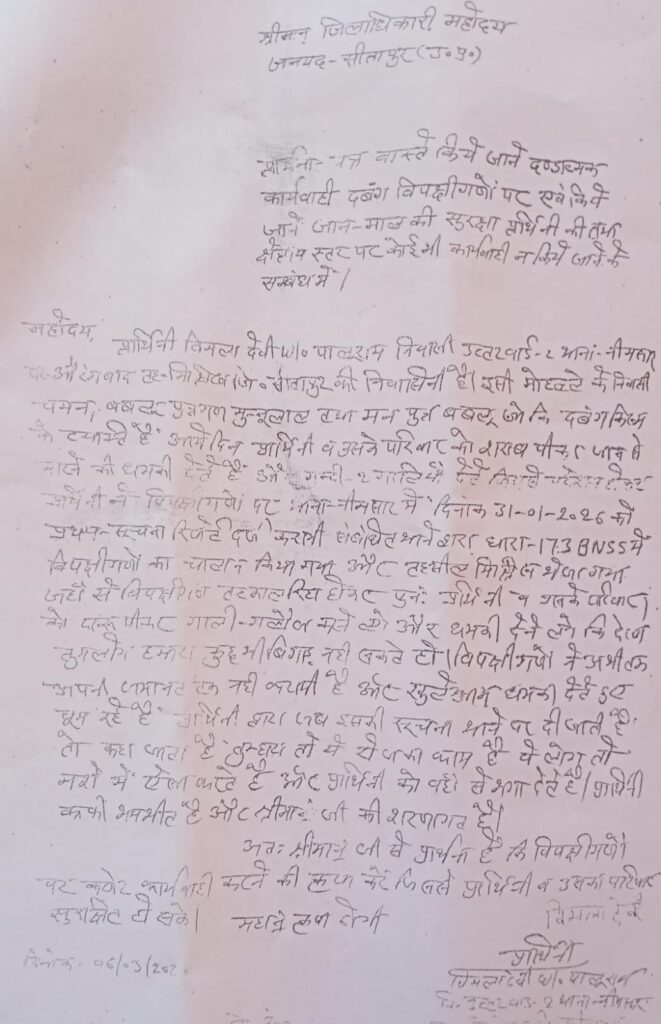 श्रीमान् जिलाधिकारी महोदय
जनपद - सीतापुर (उ०प्र०)
प्रार्थना-पत्र वास्ते किये जाने दण्डात्मक
कार्यवाही दबंग विपक्षीगणों पर एवं किये
जाने जान-माल की सुरक्षा प्रार्थिनी की तथा
क्षेत्रीय स्तर पर कोई भी कार्यवाही न किये जाने के
सम्बंध में।
महोदय,
प्रार्थिनी विमला देवी w/o पालूराम निवासी उत्तरवार्ड-2 थाना-नीमसार
पर-औरंगाबाद तह-मिश्रिख जि०-सीतापुर की निवासिनी है। इसी मोहल्ले के निवासी
चमन, बबलू पुत्रगण मुन्नूलाल तथा मन पुत्र बबलू जो कि दबंग किस्म
के व्यक्ति हैं आये दिन प्रार्थिनी व उसके परिवार को शराब पीकर जान से
मारने की धमकी देते हैं और गन्दी-2 गालियाँ देते जिससे परेशान होकर
प्रार्थिनी ने विपक्षीगणों पर थाना-नीमसार में दिनांक 31-01-2026 को
प्रथम-सूचना रिपोर्ट दर्ज करायी संबंधित थाने द्वारा धारा-173 BNSS में
विपक्षीगणों का चालान किया गया और तहसील मिश्रिख भेजा गया
जहाँ से विपक्षीगण तत्काल रिहा होकर पुनः प्रार्थिनी व उसके परिवार
को दारू पीकर गाली-गलौज करने लगे और धमकी देने लगे कि देख
तुमलोग हमारा कुछ भी बिगाड़ नहीं सकते हो। विपक्षीगणों ने अभी तक
अपनी जमानत तक नहीं करायी है और खुलेआम धमकी देते हुए
घूम रहे हैं प्रार्थिनी द्वारा जब इसकी सूचना थाने पर दी जाती है
तो कहा जाता है तुम्हारा तो ये रोज का काम है ये लोग तो
नशे में ऐसा करते हैं और प्रार्थिनी को वहाँ से भगा देते हैं। प्रार्थिनी
काफी भयभीत है और श्रीमान् जी की शरणागत है।
अतः श्रीमान् जी से प्रार्थना है कि विपक्षीगणों
पर कठोर कार्यवाही करने की कृपा करें जिससे प्रार्थिनी व उसका परिवार
सुरक्षित हो सके। महान् कृपा होगी
विमला देवी
प्रार्थिनी
दिनांक - 06/03/202
विमला देवी w/o पालूराम
नि. उत्तरवार्ड-2 थाना-नीमसार